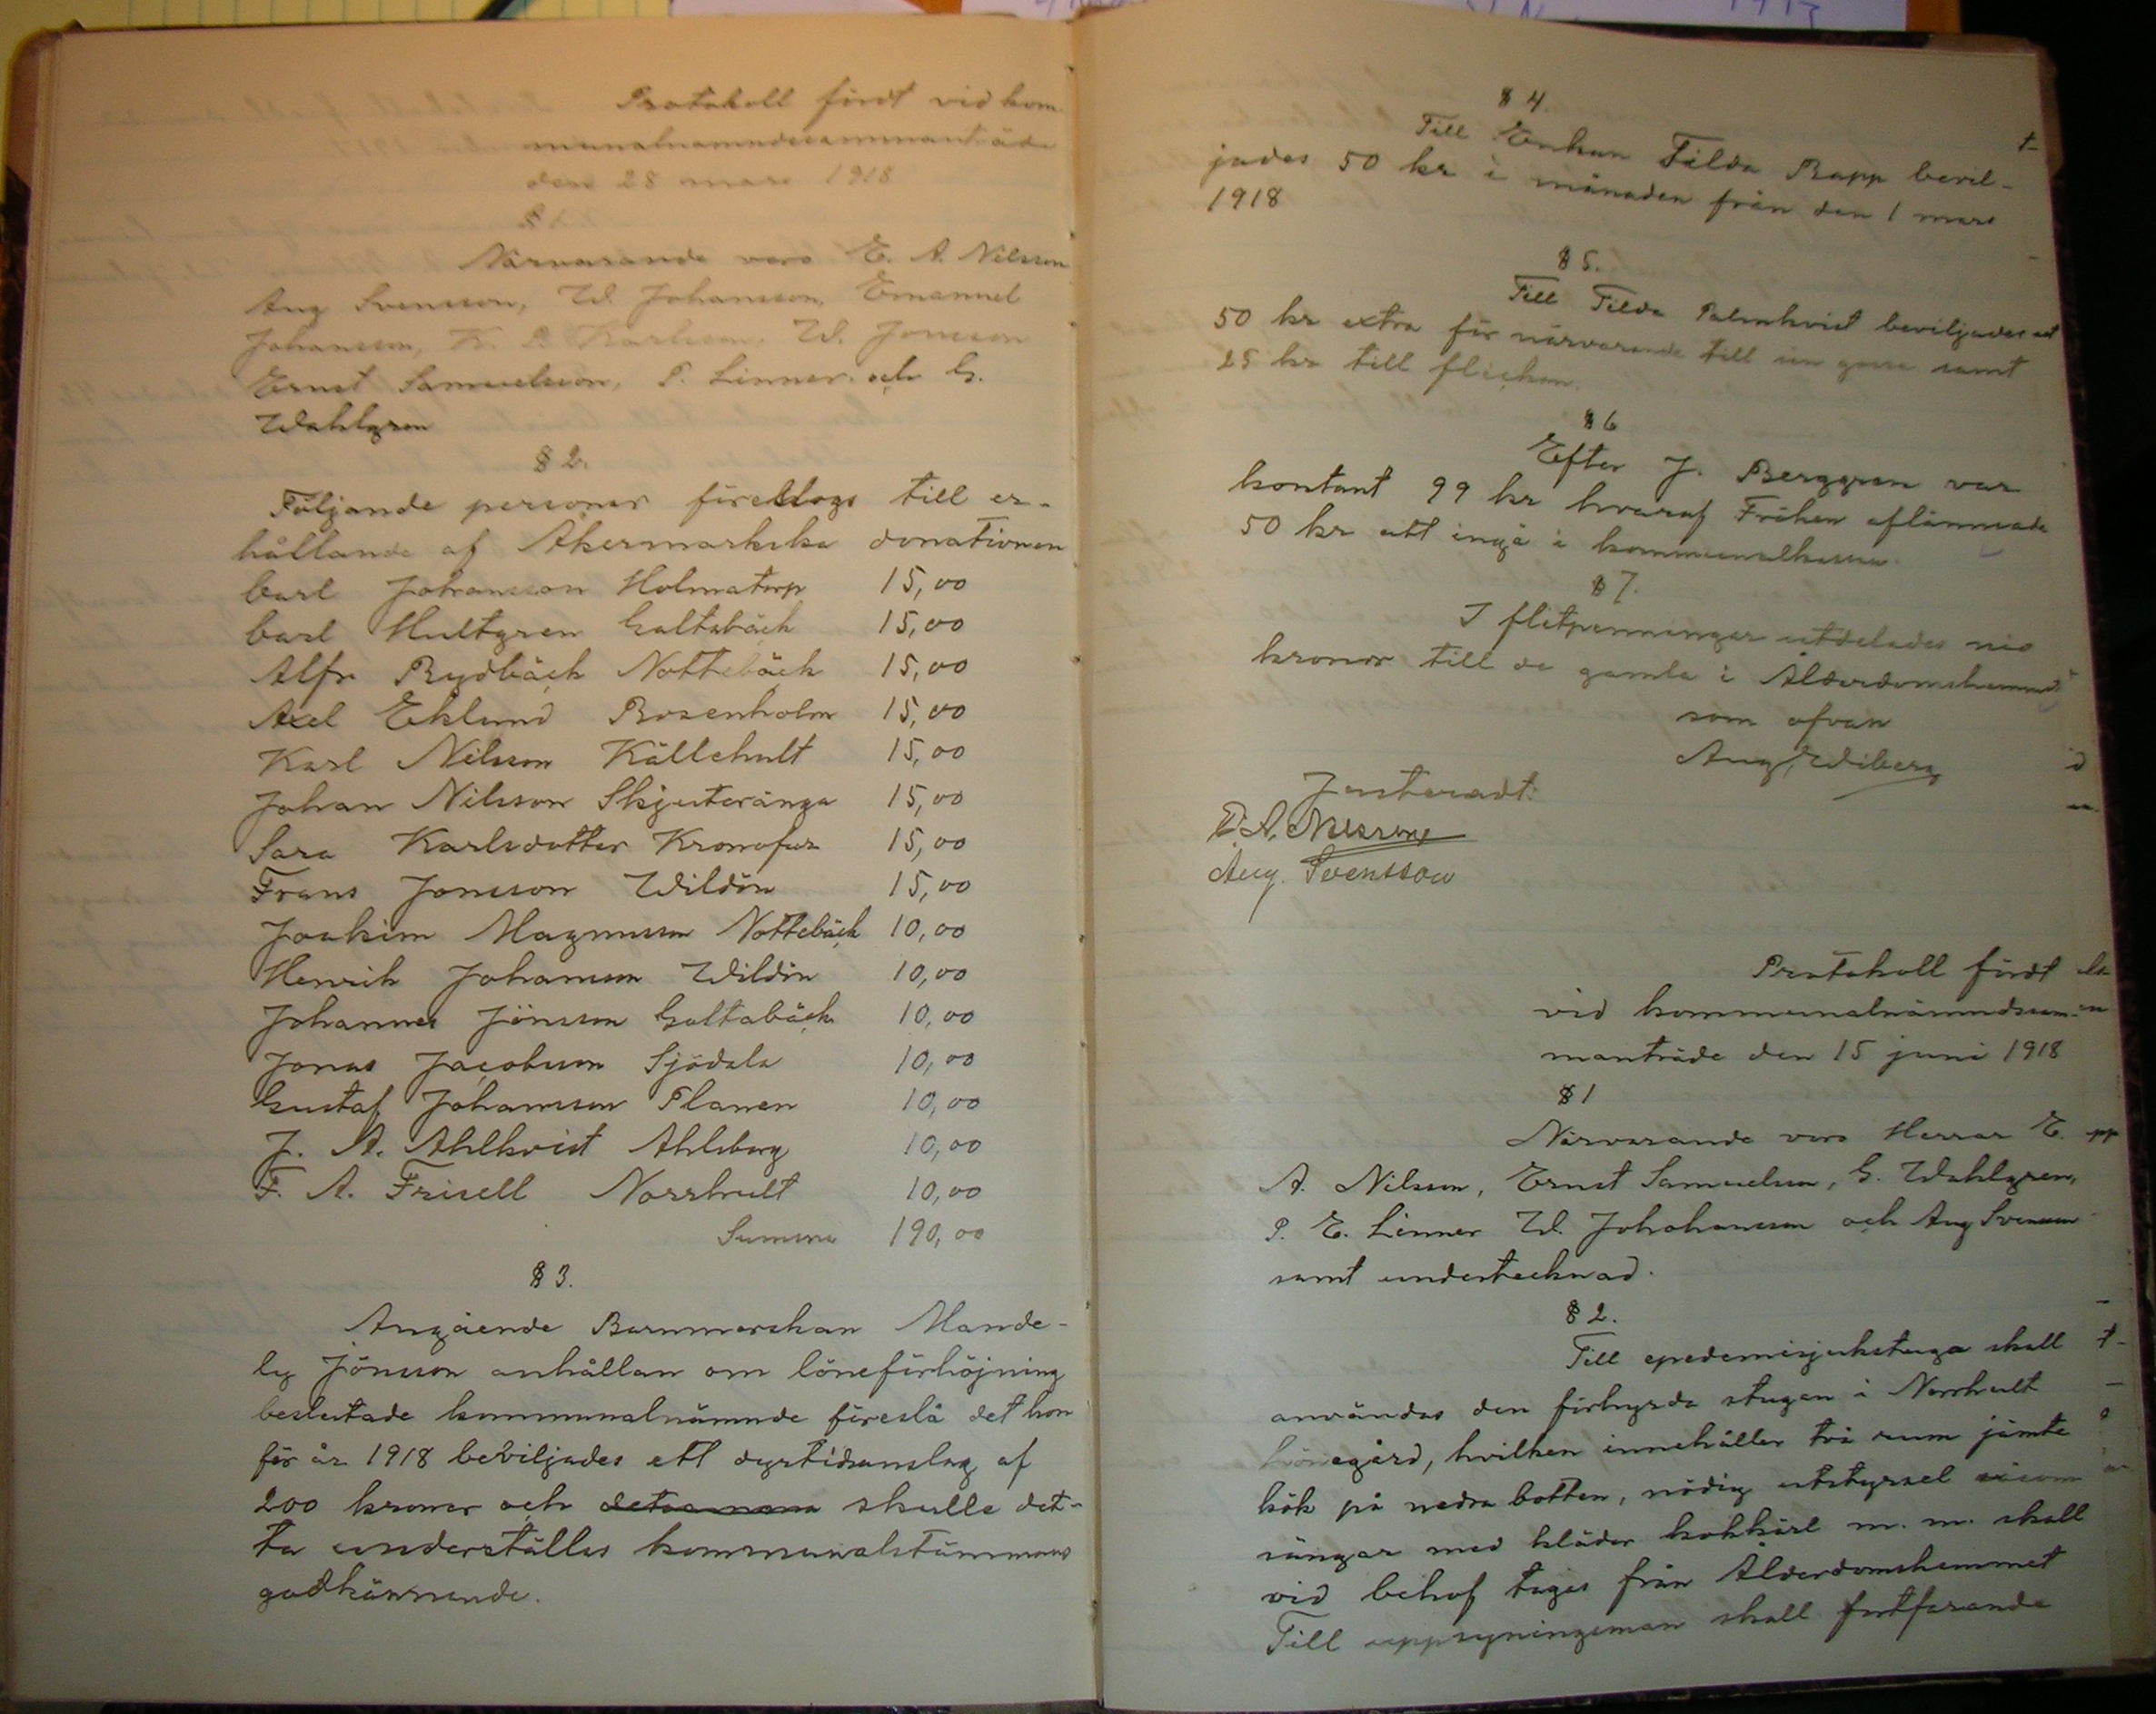 Protokoll fördt vid kom
munalnämndssammanträde
den 28 mars 1918
§ 1.
Närvarande voro E. A. Nilsson
Aug Svensson, W. Johansson, Emanuel
Johansson, K. P. Karlsson, W. Jonsson
Ernst Samuelsson, P. Linner och G.
Wahlgren
§ 2.
Följande personer föreslogs till er-
hållande af Åkermarkska donationen
Carl Johansson Holmatorp 15,00
Carl Hultgren Galtabäck 15,00
Alfr Rydbäck Nottebäck 15,00
Axel Eklund Rosenholm 15,00
Karl Nilsson Källehult 15,00
Johan Nilsson Skjuteränga 15,00
Sara Karlsdotter Kronofur 15,00
Frans Jonsson Wildön 15,00
Joakim Magnusson Nottebäck 10,00
Henrik Johansson Wildön 10,00
Johannes Jönsson Galtabäck 10,00
Jonas Jacobsson Sjödala 10,00
Gustaf Johansson Planen 10,00
J. A. Ahlkvist Ahlsberg 10,00
F. A. Frisell Norrhult 10,00
Summa 190,00
§ 3.
Angående Barnmorskan Mande-
ly Jönsson anhållan om löneförhöjning
beslutade kommunalnämnde föreslå det hon
för år 1918 beviljades ett dyrtidsanslag af
200 kronor och skulle det-
ta underställas kommunalstämmans
godkännande.
§ 4.
Till Enkan Tilda Rapp bevil-
jades 50 kr i månaden från den 1 mars
1918
§ 5.
Till Tilda Palmkvist beviljades ett
50 kr extra för närvarande till en gosse samt
25 kr till flickan.
§ 6
Efter J. Berggren var
kontant 99 kr hvaraf Fröken aflämnade
50 kr att ingå i kommunalkassan.
§ 7.
I flitpenningar utdelades nio
kronor till de gamla i Ålderdomshemmet
som ofvan
Aug, Wiberg
Justeradt:
E. A. Nilsson
Aug. Svensson
Protokoll fördt
vid kommunalnämndssam-
manträde den 15 juni 1918
§ 1
Närvarande voro Herrar E.
A. Nilsson, Ernst Samuelsson, G. Wahlgren,
P. E. Linner W. Johohansson och Aug Svensson
samt undertecknad.
§ 2.
Till epedemisjukstuga skall
användas den förhyrda stugan i Norrhult
Hönegård, hvilken innehåller två rum jämte
kök på nedra botten, nödig utstyrsel såsom
sängar med kläder kokkärl m. m. skall
vid behof tagas från Ålderdomshemmet
Till uppsyningsman skall fortfarande